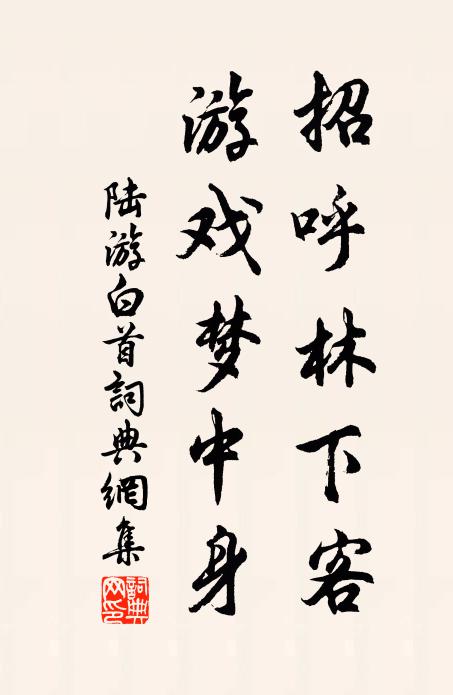 招呼林下客
游戏梦中身
陆游白首詞典網集
詞典網印